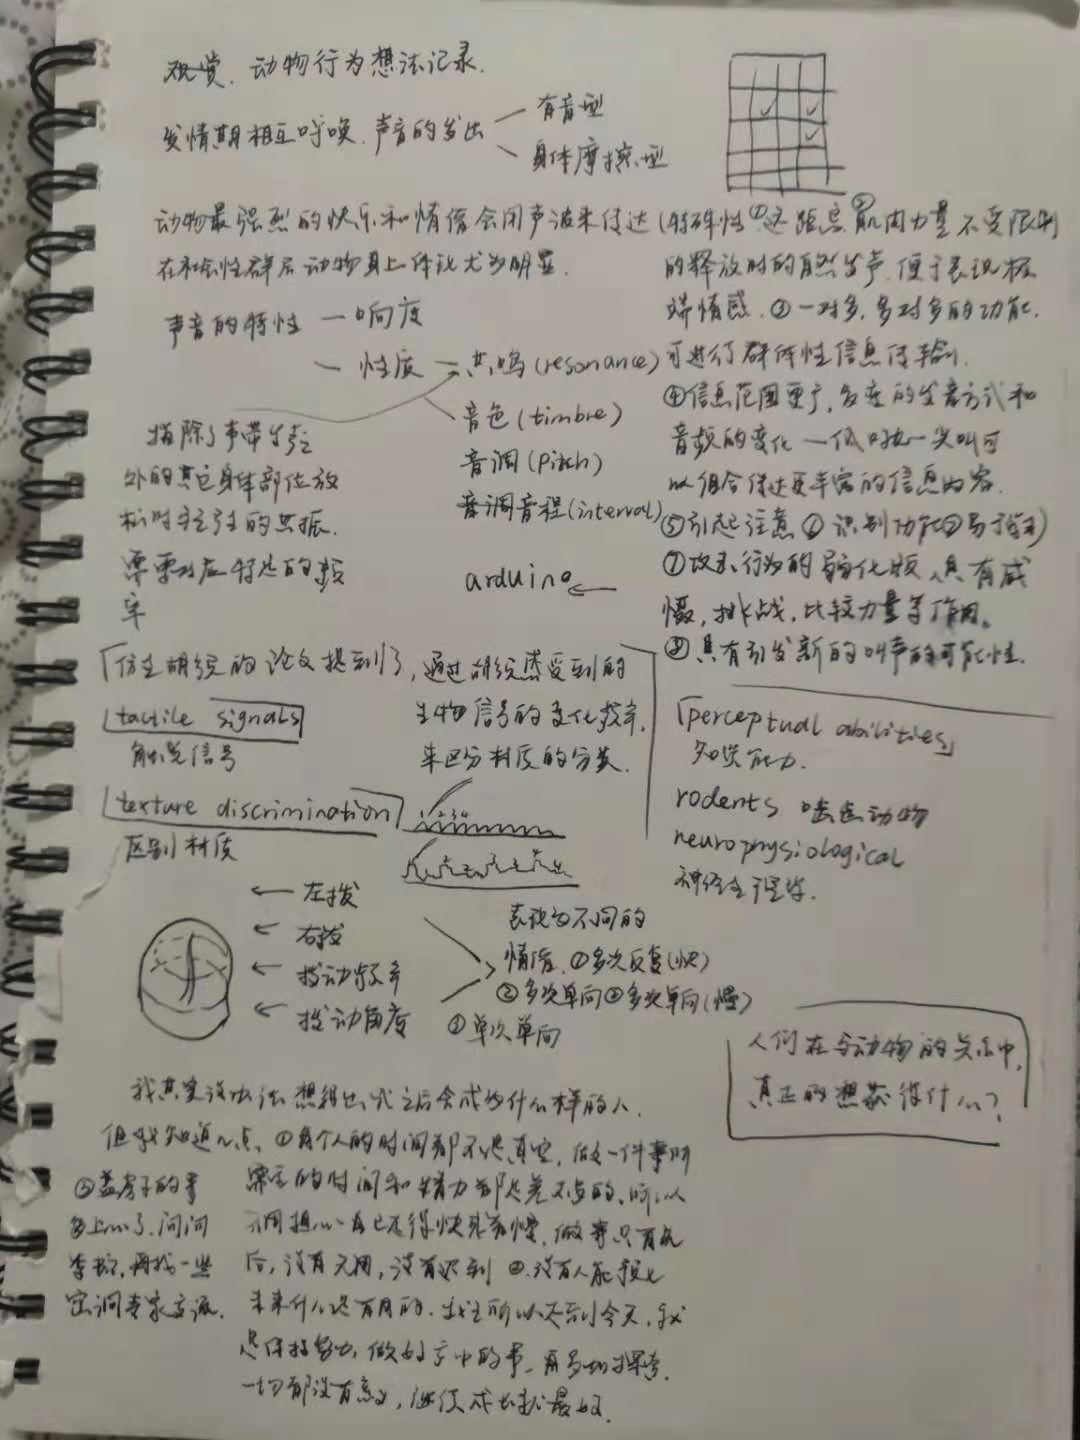 观赏. 动物行为想法记录.
发情期相互呼唤. 声音的发出
有音型
身体摩擦型
动物最强烈的快乐和情绪会用声波来传达 (特殊性 ①远距离 ②肌肉力量不受限制
在社会性群居动物身上体现尤为明显.
的释放时的自然发声. 便于表现极
端情感. ③一对多, 多对多的功能.
可进行群体性信息传输.
④信息范围更广, 多变的发音方式和
音频的变化 一低吼一尖叫可
以组合传达更丰富的信息内容.
⑤引起注意 ⑥识别功能
⑦攻击行为的弱化版, 具有威
慑, 挑战, 比较力量等作用。
⑧具有引发新的叫声的可能性.
声音的特性 一 响度
一 性质 一 共鸣 (resonance)
音色 (timbre)
音调 (Pitch)
音调音程 (interval)
arduino
指除了声带发声
外的其它身体部位放
松时产生的共振.
需要对应特定的频
率
「仿生胡须的论文提到了, 通过胡须感受到的
生物信号的变化频率,
来区分材质的分类.
tactile signals
触觉信号
texture discrimination
区别材质
1234
「perceptual abilities」
知觉能力.
rodents 啮齿动物
neurophysiological
神经生理学.
左拨
右拨
拨动频率
拨动角度
表现为不同的
情绪. ①多次反复(快)
②多次单向 ③多次单向(慢)
④单次单向
人们在与动物的关系中,
真正的想获得什么?
我其实没办法想得出我之后会成为什么样的人.
但我知道几点. ①每个人的时间都不是真空, 做一件事所
需要的时间和精力都是差不多的, 所以
不用担心自己走得快或者慢, 做事只有先
后, 没有无用, 没有迟到 ②没有人能预见
未来什么是有用的. 我之所以走到今天, 我
是保持努力, 做好手中的事, 再多加探索.
一切都没有意义, 继续成长就最好.
③盖房子的事
多上心了, 问问
再找一些
窑洞专家交流.